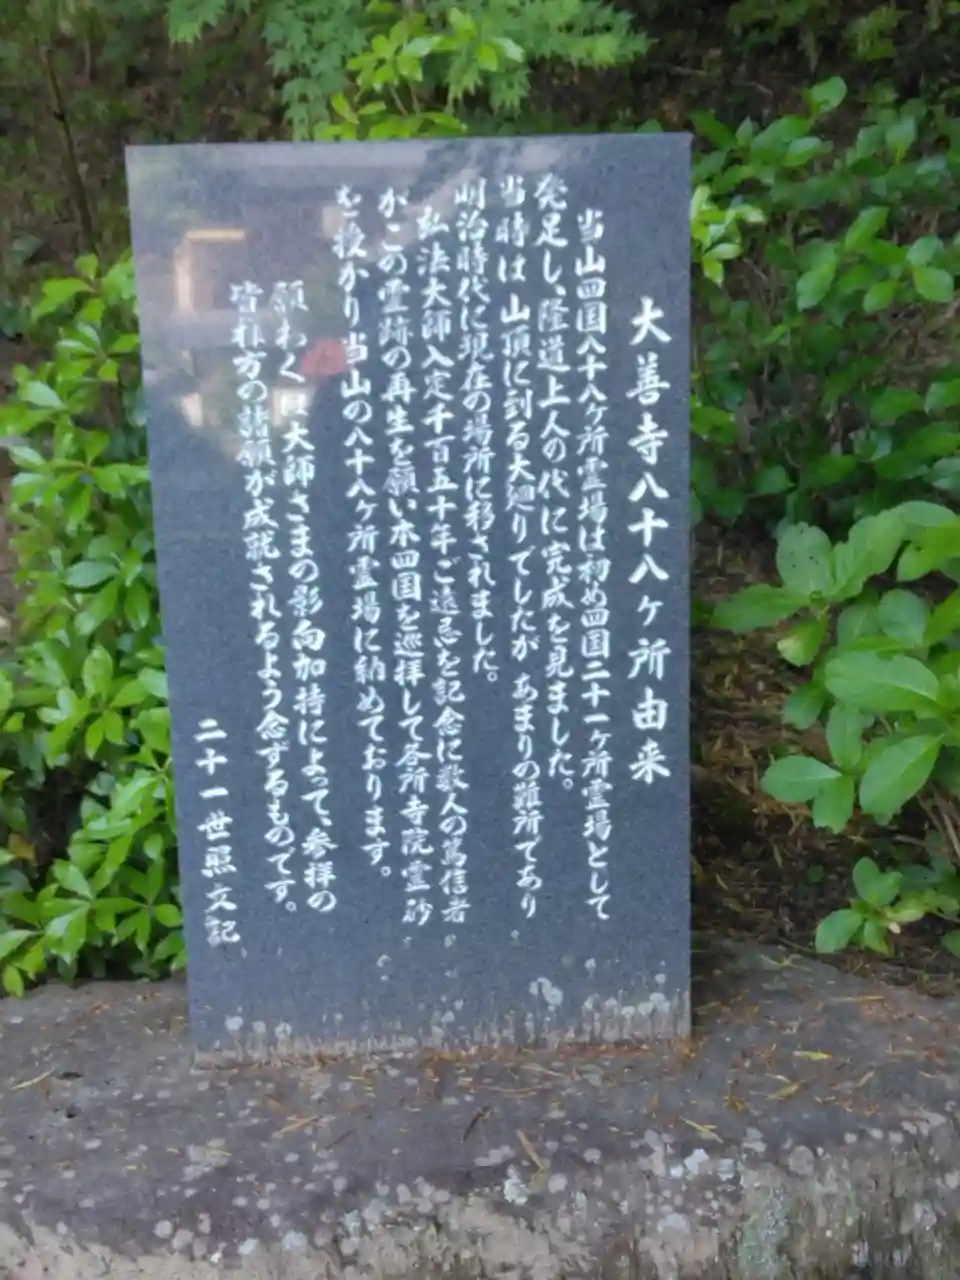 大善寺八十八ヶ所由来
当山四国八十八ヶ所霊場は初め四国二十一ヶ所霊場として
発足し、隆道上人の代に完成を見ました。
当時は山頂に到る大廻りでしたが あまりの難所であり
明治時代に現在の場所に移されました。
弘法大師入定千百五十年ご遠忌を記念に数人の篤信者
がこの霊跡の再生を願い本四国を巡拝して各所寺院霊砂
を授かり当山の八十八ヶ所霊場に納めております。
願わくは大師さまの影向加持によって、参拝の
皆れ方の諸願が成就されるよう念ずるものです。
二十一世照文記